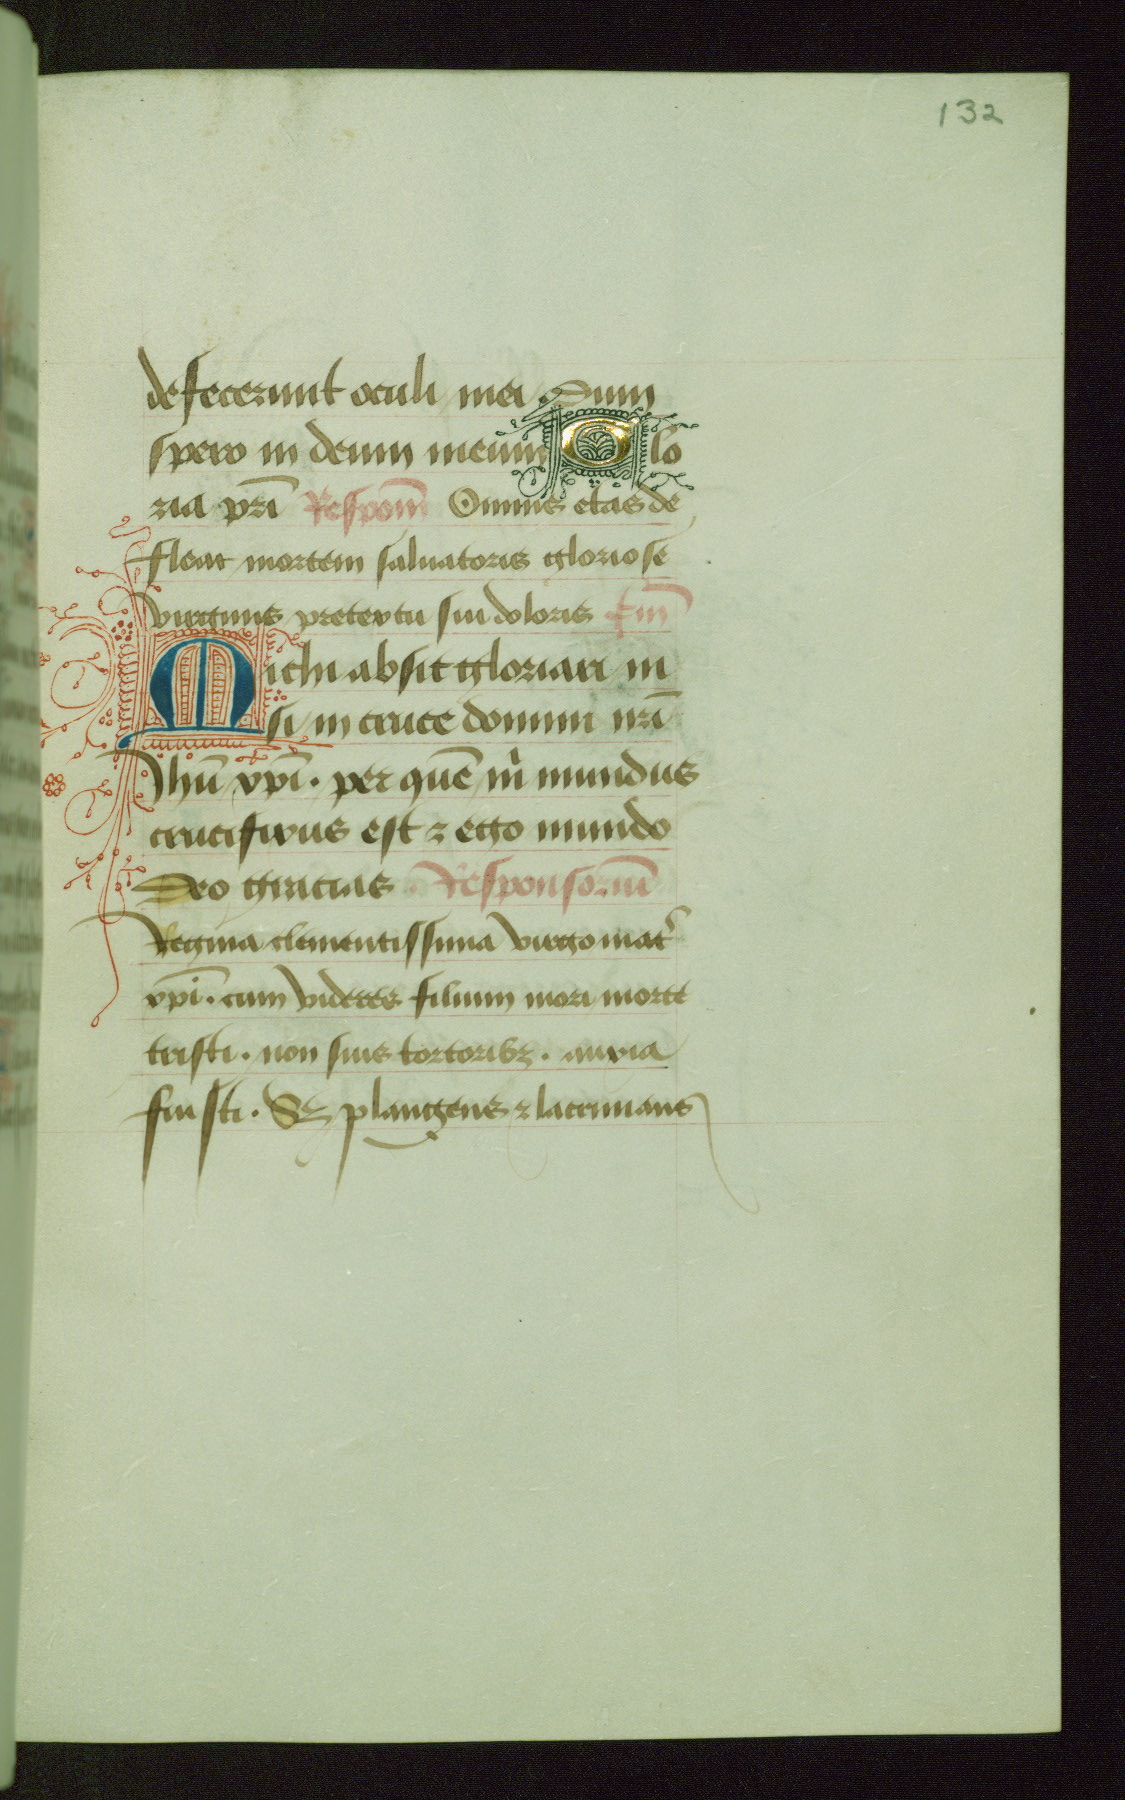 132
defecerunt oculi mei. Dum
spero in deum meum Glo
ria pr̄i Respom̄ Omnis etas de
fleat mortem saluatoris gloriose
virginis pretextu sui doloris
Michi absit gloriari ni
si in cruce domini nr̄i
Jhū xp̄i. per quē m̍ mundus
crucifixus est ⁊ ego mundo
Deo gracias Responsoriū
Regina clementissima virgo mat᷑
xp̄i. cum videres filium mori morte
tristi. non sine tortoribꝫ. anxia
fuisti. Sꝫ plangens ⁊ lacrimans